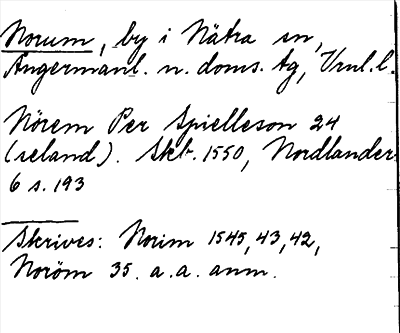 Norum, by i Nätra sn,
Ångermanl. n. doms. tg, Vnl. l.
Nörem Per Spielleson 24
(seland). Skb. 1550, Nordlander
6 s. 193
Skrives: Norim 1545, 43, 42,
Noröm 35. a. a. anm.